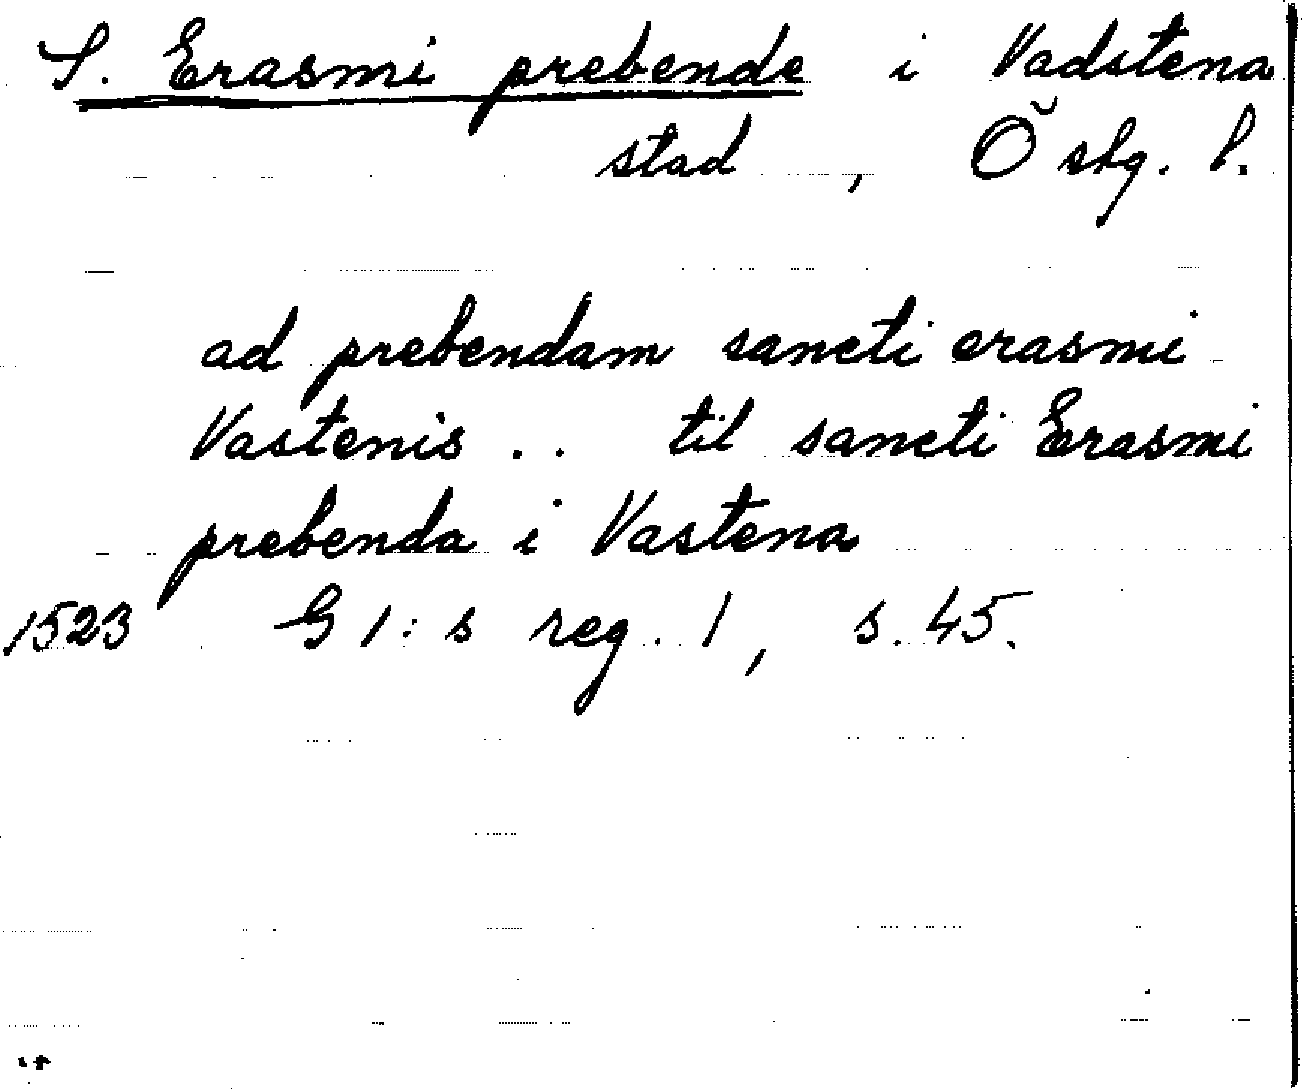 S. Erasmi prebende i Vadstena
stad, Östg. l.
ad prebendam sancti erasmi
Vastenis .. til sancti Erasmi
prebenda i Vastena
1523 G I:s reg. I, s. 45.